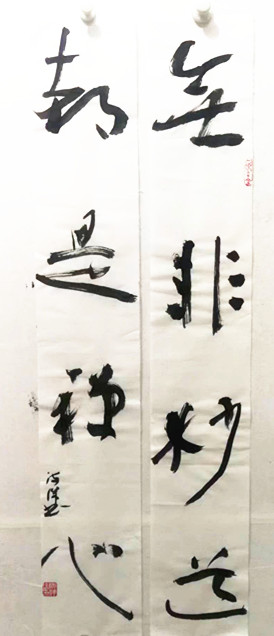 無非妙道
都是禅心